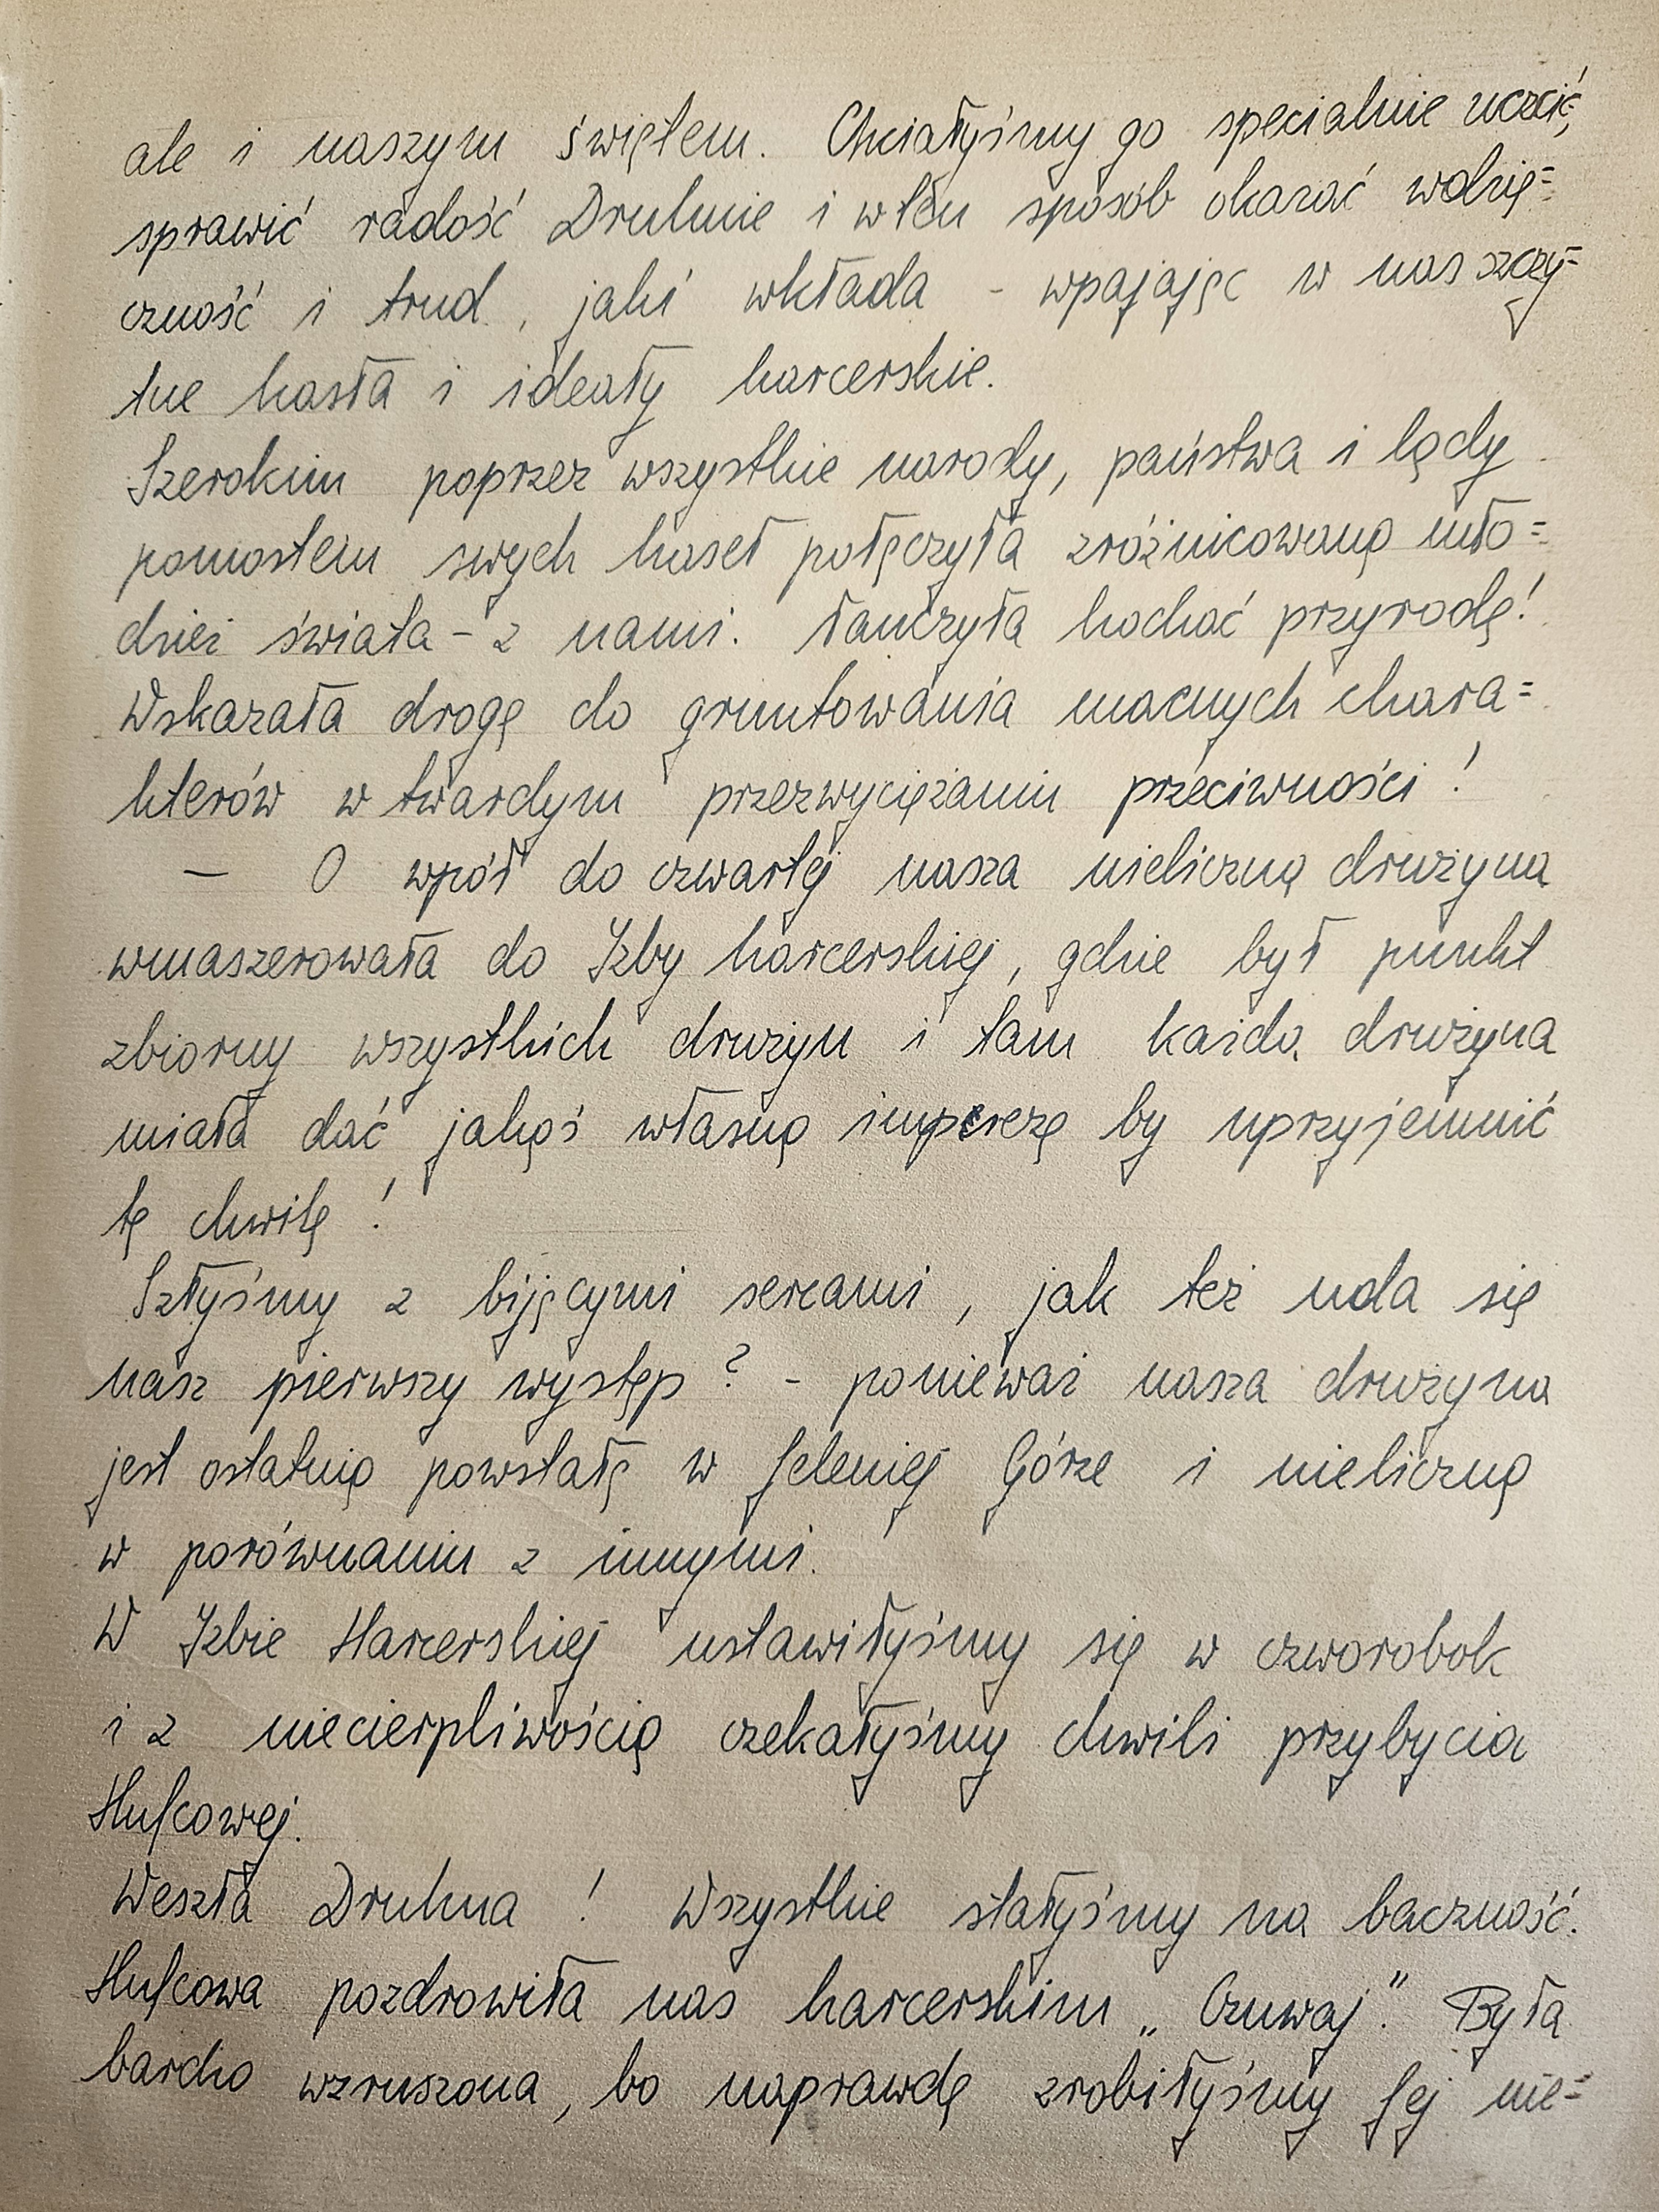 ale i naszym świętem. Chciałyśmy go specialnie uczcić,
sprawić radość Druhnie i w ten sposób okazać wdzię=
czność i trud, jaki wkłada - wpajając w nas szczy=
tne hasła i ideały harcerskie.
Szerokim poprzez wszystkie narody, państwa i lądy
pomostem swych haseł połączyła zróżnicowaną mło=
dzież świata - z nami. Nauczyła kochać przyrodę!
Wskazała drogę do gruntowania mocnych chara=
kterów w twardym przezwyciężaniu przeciwności!
— O wpół do czwartej nasza nieliczna drużyna
wmaszerowała do Izby harcerskiej, gdzie był punkt
zbiorny wszystkich drużyn i tam każda drużyna
miała dać jakąś własną imprezę by uprzyjemnić
tę chwilę!
Szłyśmy z bijącymi sercami, jak też uda się
nasz pierwszy występ? - ponieważ nasza drużyna
jest ostatnią powstałą w Jeleniej Górze i nieliczną
w porównaniu z innymi.
W Izbie Harcerskiej ustawiłyśmy się w czworobok
i z niecierpliwością czekałyśmy chwili przybycia
Hufcowej.
Weszła Druhna! Wszystkie stałyśmy na baczność.
Hufcowa pozdrowiła nas harcerskim „Czuwaj". Była
bardzo wzruszona, bo naprawdę zrobiłyśmy Jej nie=